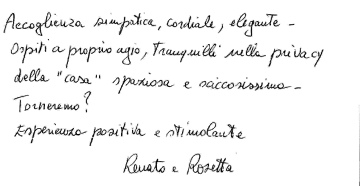 Accoglienza simpatica, cordiale, elegante -
Ospiti a proprio agio, tranquilli nella privacy
della "casa" spaziosa e saccosissima -
Torneremo?
Esperienza positiva e stimolante
Renato e Rosetta